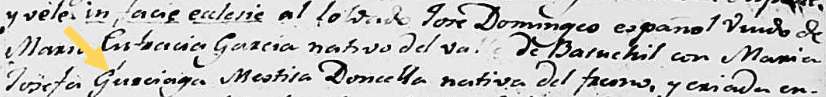 y velé in facie eclesie al soldado José Domingo español viudo de
Maria Eutracia Garcia nativo del valle de Basuchil con Maria
Josefa Gurciaga Mestisa Doncella nativa del fresno, y criada en-